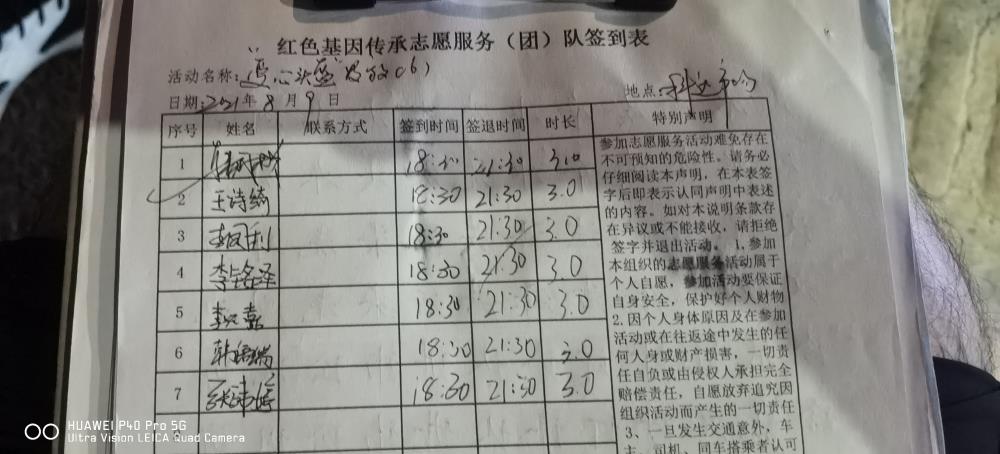 红色基因传承志愿服务（团）队签到表
活动名称：爱心头盔发放(6)
地点：
日期：2021年8月9日
序号 姓名 联系方式 签到时间 签退时间 时长 特别声明
1 18:30 21:30 3.0
2 王诗绮 18:30 21:30 3.0
3 18:30 21:30 3.0
4 18:30 21:30 3.0
5 18:30 21:30 3.0
6 18:30 21:30 3.0
7 18:30 21:30 3.0
参加志愿服务活动难免存在
不可预知的危险性。请务必
仔细阅读本声明，在本表签
字后即表示认同声明中表述
的内容。如对本说明条款存
在异议或不能接收，请拒绝
签字并退出活动。1、参加
本组织的志愿服务活动属于
个人自愿，参加活动要保证
自身安全，保护好个人财物
2、因个人身体原因及在参加
活动或在往返途中发生的任
何人身或财产损害，一切责
任自负或由侵权人承担完全
赔偿责任，自愿放弃追究因
组织活动而产生的一切责任
3、一旦发生交通意外，车
主、司机、同车搭乘者认可
HUAWEI P40 Pro 5G
Ultra Vision LEICA Quad Camera